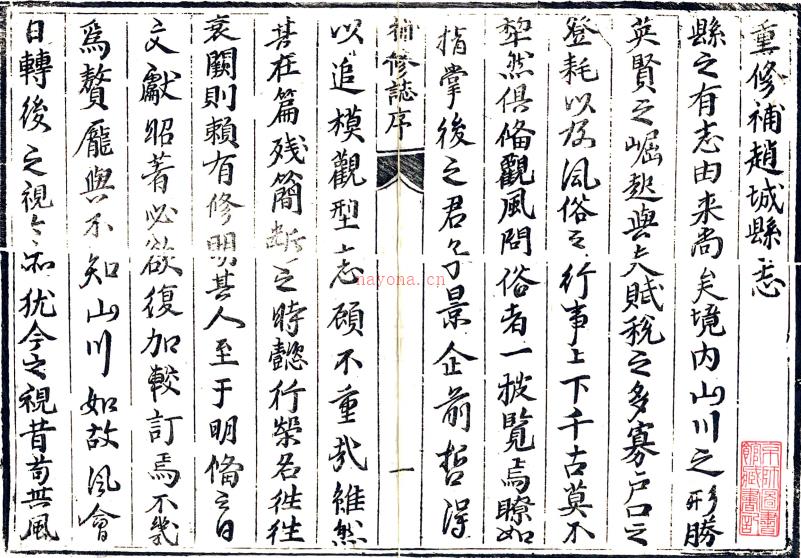 重修補趙城縣志
縣之有志由来尚矣境内山川之形勝
英賢之崛起與夫賦稅之多寡戶口之
登耗以及風俗之行事上下千古莫不
犂然俱備觀風問俗者一披覽焉瞭如
指掌後之君子景企前哲得
補修誌序
一
以追模觀型志顧不重哉雖然
其在篇殘簡斷之時懿行榮名徃徃
衰闕則賴有修明其人至于明備之日
文獻昭著必欲復加較訂焉不幾
為贅龐與不知山川如故風會
日轉後之視今亦犹今之視昔苟無風
nayona.cn